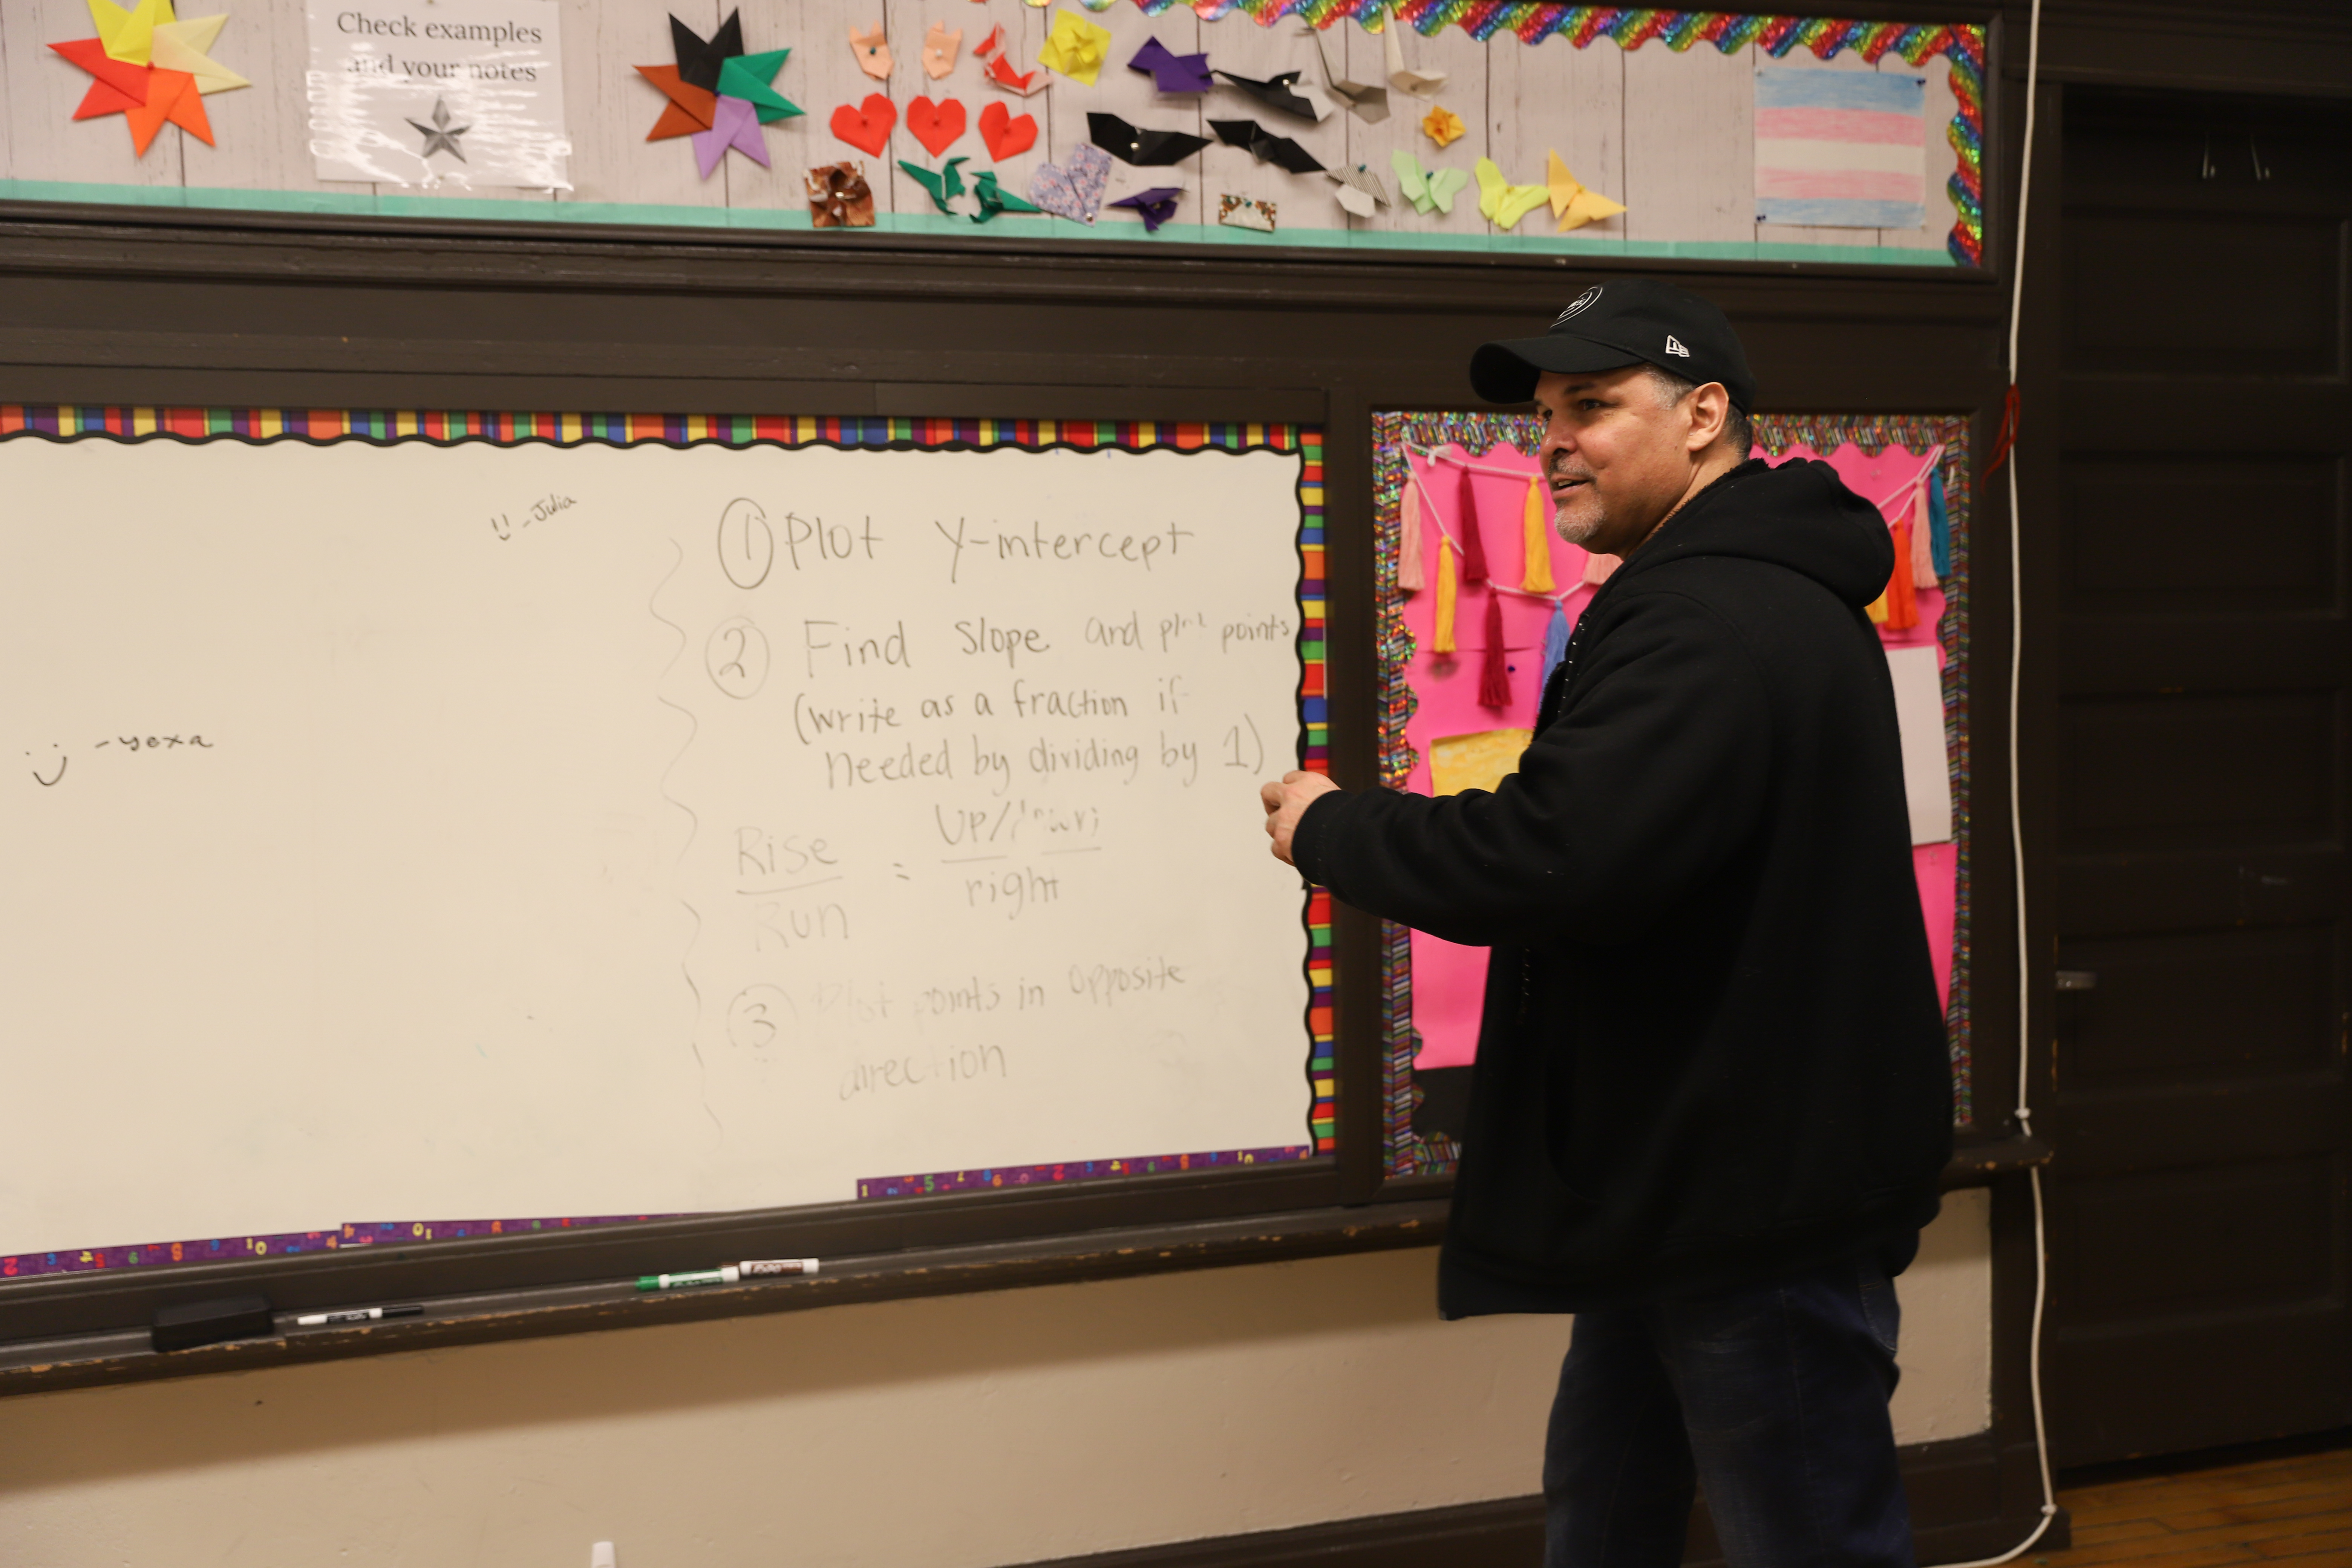 Check examples
and your notes
:) -Julia
:) -yexa
① Plot Y-intercept
② Find Slope and plot points
(write as a fraction if
needed by dividing by 1)
Rise = Up/
Run right
③ Plot points in opposite
direction